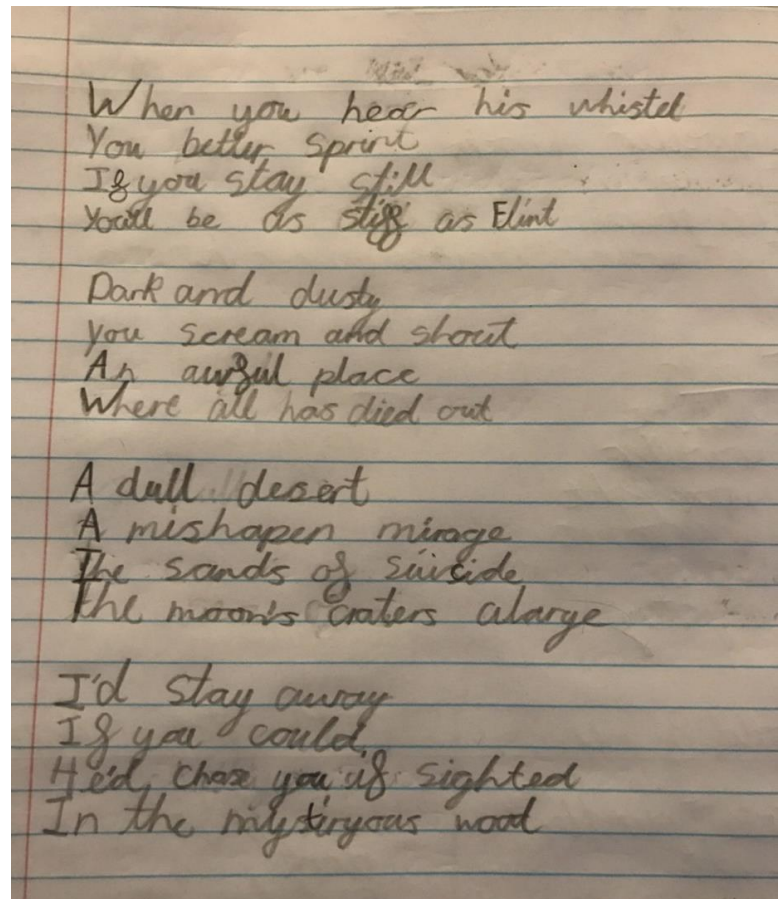 When you hear his whistel
You better sprint
If you stay still
You'll be as stiff as Flint
Dark and dusty
You scream and shout
An awful place
Where all has died out
A dull desert
A mishapen mirage
The sands of suicide
The moon's craters alarge
I'd stay away
If you could,
He'd, chase you if sighted
In the mystiryous wood